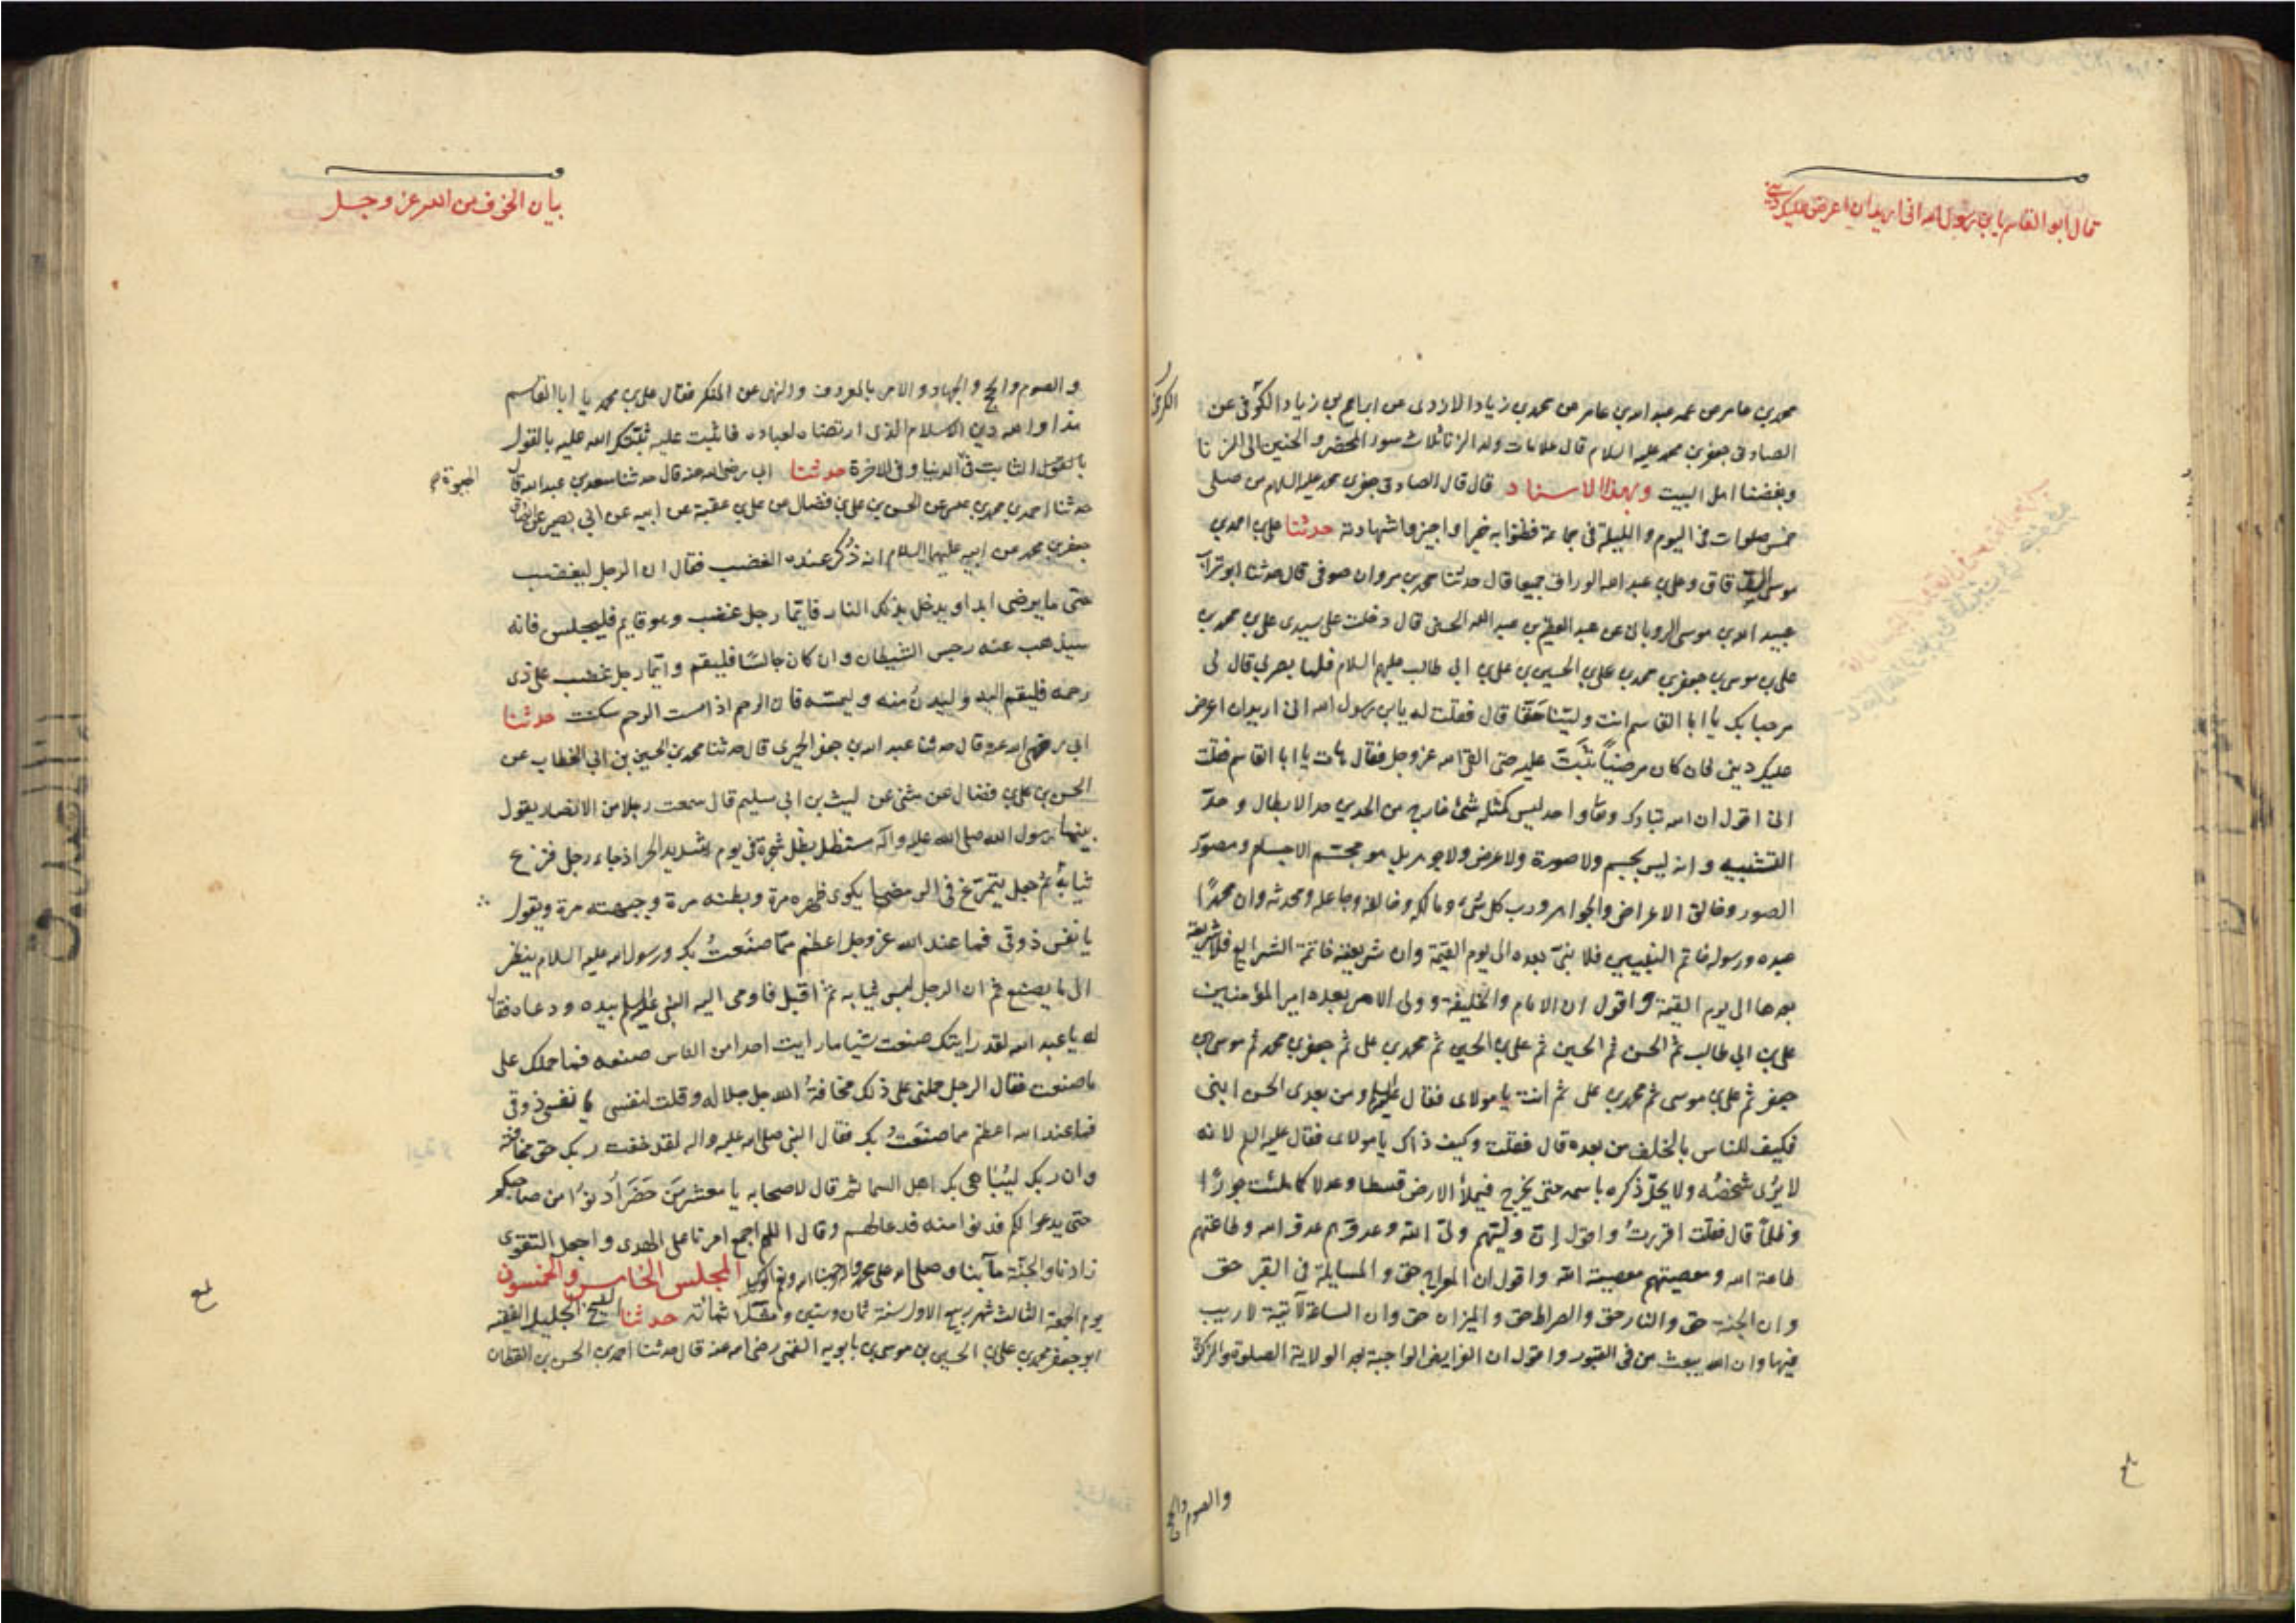 قال ابو القاسم يابن رسول الله اني اريد ان اعرض عليك ديني
محمد بن عامر عن عمه عبد الله بن عامر عن محمد بن زياد الازدى عن ابراهيم بن زياد الكوفى عن
الكرخى
الصادق جعفر بن محمد عليه السلام قال علامات ولد الزنا ثلاث سوء المحضر و الحنين الى الزنا
وبغضنا اهل البيت وبهذا الاسناد قال قال الصادق جعفر بن محمد عليه السلام من صلى
خمس صلوات فى اليوم و الليلة فى جماعة فظنوا به خيرا واجيزوا شهادته حدثنا على بن احمد بن
موسى الدقاق وعلى بن عبد الله الوراق جميعا قال حدثنا محمد بن هرون صوفى قال حدثنا ابو تراب
عبيد الله بن موسى الرويانى عن عبد العظيم بن عبد الله الحسنى قال دخلت على سيدى على بن محمد بن
على بن موسى بن جعفر بن محمد بن على بن الحسين بن على بن ابى طالب عليهم السلام فلما بصر بى قال لى
مرحبا بك يا ابا القاسم انت ولينا حقا قال فقلت له يابن رسول الله انى اريد ان اعرض
عليك دينى فان كان مرضيا ثبتُّ عليه حتى القى الله عز وجل فقال هات يا ابا القاسم فقلت
انى اقول ان الله تبارك وتعا واحد ليس كمثله شئ خارج من الحدين حد الابطال و حد
التشبيه و انه ليس بجسم ولا صورة ولا عرض ولا جوهر بل هو مجسم الاجسام و مصور
الصور وخالق الاعراض والجواهر ورب كل شئ و مالكه وخالقه وجاعله ومحدثه وان محمدًا
عبده ورسوله خاتم النبيين فلا نبى بعده الى يوم القيمة وان شريعته خاتمة الشرايع فلا شريعة
بعدها الى يوم القيمة واقول ان الامام والخليفة و ولى الامر بعده امير المؤمنين
على بن ابى طالب ثم الحسن ثم الحسين ثم على بن الحسين ثم محمد بن على ثم جعفر بن محمد ثم موسى بن
جعفر ثم على بن موسى ثم محمد بن على ثم انت يا مولاى فقال عليه السلام ومن بعدى الحسن ابنى
فكيف للناس بالخلف من بعده قال فقلت وكيف ذاك يا مولاى فقال عليه السلم لانه
لا يُرى شخصُه ولا يحل ذكره باسمه حتى يخرج فيملأ الارض قسطا وعدلا كما ملئت جورًا
وظلمًا قال فقلت اقررتُ واقول إن وليّهم ولىّ الله وعدوهم عدو الله وطاعتهم
طاعة الله و معصيتهم معصية الله واقول ان المعراج حق و المسايلة فى القبر حق
وان الجنة حق والنار حق والصراط حق و الميزان حق وان الساعة لآتية لا ريب
فيها وان الله يبعث من فى القبور واقول ان الفرايض الواجبة بعد الولاية الصلوة والزكوة
والصوم والحج
بيان الخوف من الله عز وجل
و الصوم والحج و الجهاد و الامر بالمعروف والنهى عن المنكر فقال على بن محمد يا ابا القاسم
هذا والله دين الاسلام الذى ارتضاه لعباده فاثبت عليه ثبّتك الله عليه بالقول
بالقول الثابت فى الدنيا وفى الاخرة حدثنا ابى رضى الله عنه قال حدثنا سعد بن عبد الله قال
الحيوة
حدثنا احمد بن محمد بن عيسى عن الحسن بن على بن فضال عن على بن عقبة عن ابيه عن ابى بصير عن الصادق
جعفر بن محمد عن ابيه عليهما السلام انه ذُكر عنده الغضب فقال ان الرجل ليغضب
حتى ما يرضى ابدا و يدخل بذلك النار فايّما رجل غضب وهو قايم فليجلس فانه
سيذهب عنه رجس الشيطان وان كان جالسًا فليقم و ايّما رجل غضب على ذى
رحمه فليقم اليه وليدن منه وليمسّه فان الرحم اذا مست الرحم سكنت حدثنا
ابى رضى الله عنه قال حدثنا عبد الله بن جعفر الحميرى قال حدثنا محمد بن الحسين بن ابى الخطاب عن
الحسن بن على بن فضال عن مثنى عن ليث بن ابى سليم قال سمعت رجلا من الانصار يقول
بينما رسول الله صلى الله عليه وآله مستظل بظل شجرة فى يوم شديد الحر اذ جاء رجل فنزع
ثيابه ثم جعل يتمرّغ فى الرمضا يكوى ظهره مرة و بطنه مرة و جبهته مرة ويقول
يا نفس ذوقى فما عند الله عز وجل اعظم ممّا صنعتُ بك ورسول الله عليه السلام ينظر
الى ما يصنع ثم ان الرجل لبس ثيابه ثم اقبل فاومى اليه النبى عليه السلم بيده و دعاه فقال
له يا عبد الله لقد رايتك صنعت شيا ما رايت احدا من الناس صنعه فما حملك على
ما صنعت فقال الرجل حملنى على ذلك مخافةُ الله جل جلاله وقلت لنفسى يا نفس ذوقى
فما عند الله اعظم مما صنعتُ بك فقال النبى صلى الله عليه واله لقد خفت ربك حق مخافته
وان ربك ليُباهى بك اهل السما ثم قال لاصحابه يا معشر مَن حَضَرَ أدنوا من صاحبكم
حتى يدعوا لكم فدنوا منه فدعا لهم وقال اللهم اجمع امرنا على الهدى واجعل التقوى
زادنا والجنّة مآبنا وصلى الله على محمد واله المجلس الخامس والخمسون
يوم الجمعة الثالث شهر ربيع الاول سنة ثمان وستين و ثلثمائة حدثنا الشيخ الجليل الفقيه
ابو جعفر محمد بن على بن الحسين بن موسى بن بابويه القمى رضى الله عنه قال حدثنا احمد بن الحسن بن القطان